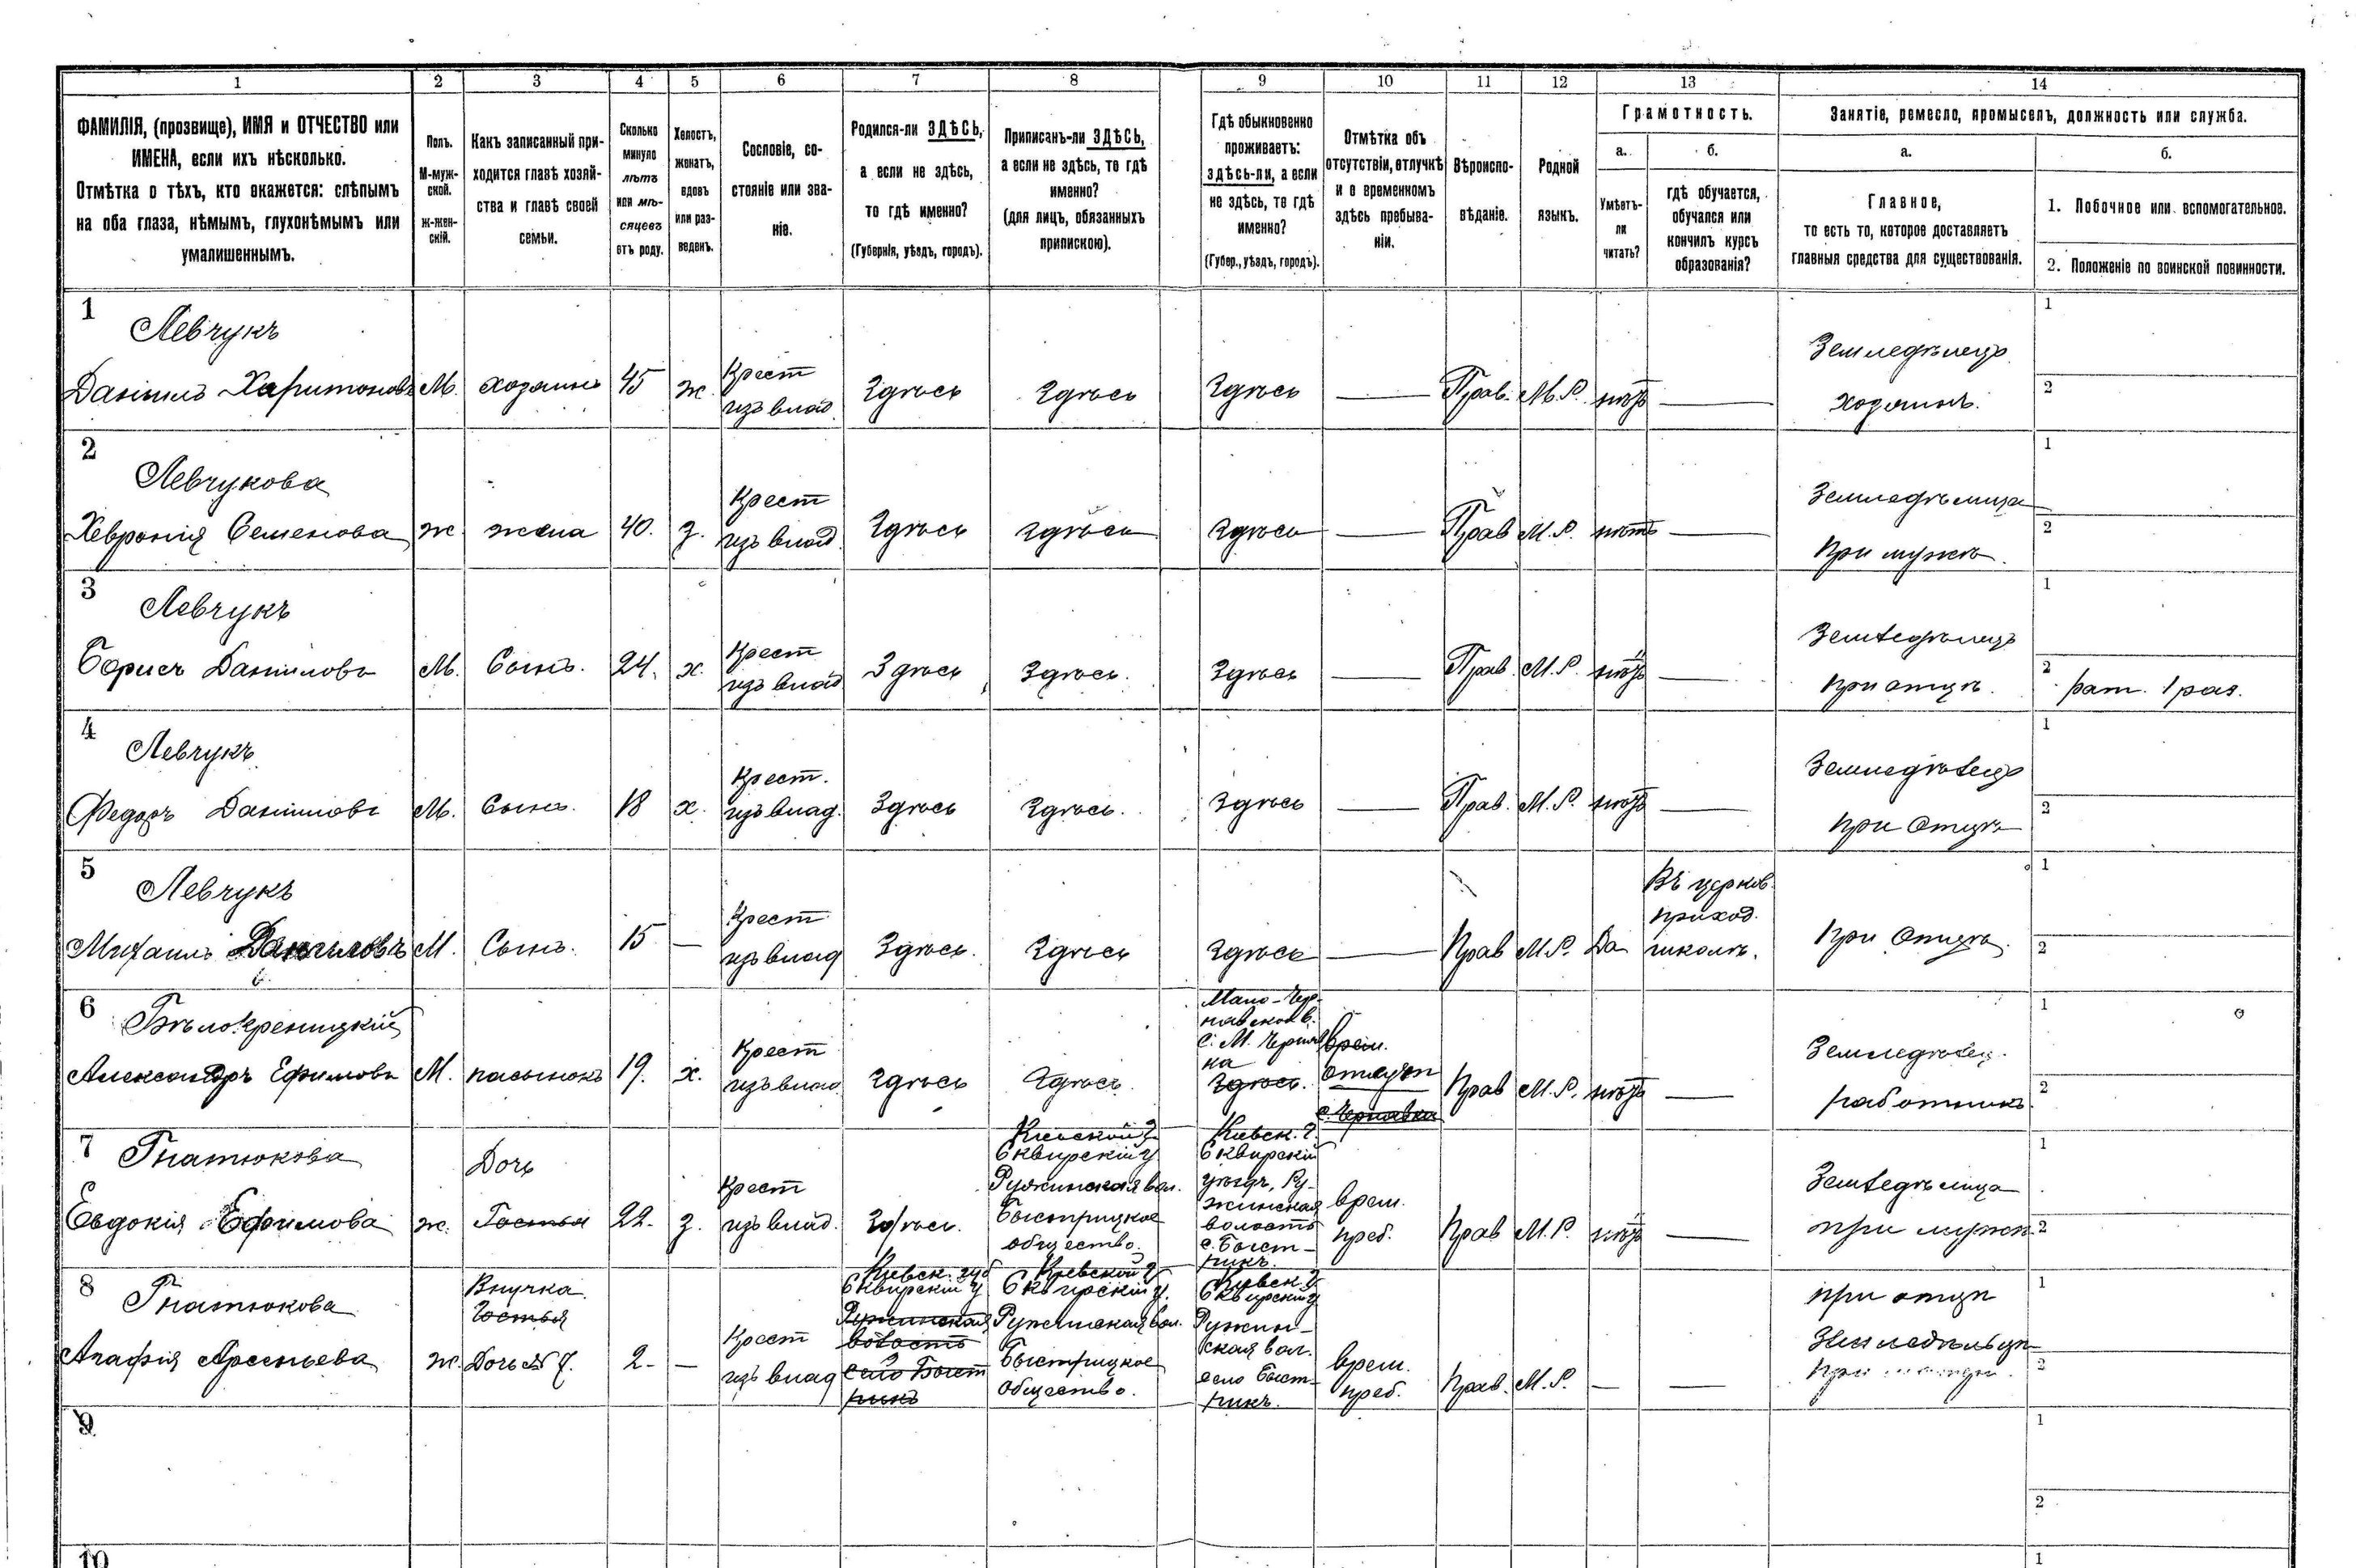 1
2
3
4
5
6
7
8
9
10
11
12
13
14
ФАМИЛІЯ, (прозвище), ИМЯ и ОТЧЕСТВО или
ИМЕНА, если ихъ нѣсколько.
Отмѣтка о тѣхъ, кто окажется: слѣпымъ
на оба глаза, нѣмымъ, глухонѣмымъ или
умалишеннымъ.
Полъ.
М-муж-
ской.
ж-жен-
скій.
Какъ записанный при-
ходится главѣ хозяй-
ства и главѣ своей
семьи.
Сколько
минуло
лѣтъ
или мѣ-
сяцевъ
отъ роду.
Холостъ,
женатъ,
вдовъ
или раз-
веденъ.
Сословіе, со-
стояніе или зва-
ніе.
Родился-ли ЗДѢСЬ,
а если не здѣсь,
то гдѣ именно?
(Губернія, уѣздъ, городъ).
Приписанъ-ли ЗДѢСЬ,
а если не здѣсь, то гдѣ
именно?
(для лицъ, обязанныхъ
припискою).
Гдѣ обыкновенно
проживаетъ:
здѣсь-ли, а если
не здѣсь, то гдѣ
именно?
(Губер., уѣздъ, городъ).
Отмѣтка объ
отсутствіи, отлучкѣ
и о временномъ
здѣсь пребыва-
ніи.
Вѣроиспо-
вѣданіе.
Родной
языкъ.
Грамотность.
а.
б.
Умѣетъ-
ли
читать?
гдѣ обучается,
обучался или
кончилъ курсъ
образованія?
Занятіе, ремесло, промыселъ, должность или служба.
а.
б.
Главное,
то есть то, которое доставляетъ
главныя средства для существованія.
1. Побочное или вспомогательное.
2. Положеніе по воинской повинности.
1
Левчукъ
Даніилъ Харитоновъ
М.
хозяинъ
45
ж.
Крест
изъ влад.
Здѣсь
Здѣсь
Здѣсь
Прав.
М.Р.
нѣтъ
Земледѣлецъ
хозяинъ.
1
2
2
Левчукова
Хевронія Семенова
ж.
жена
40.
з.
Крест
изъ влад.
Здѣсь
Здѣсь
Здѣсь
Прав
М.Р.
нѣтъ
Земледѣлица
при мужѣ.
1
2
3
Левчукъ
Борисъ Даниловъ
М.
Сынъ.
24.
х.
Крест
изъ влад
Здѣсь
Здѣсь.
Здѣсь
Прав.
М.Р.
нѣтъ
Земледѣлецъ
при отцѣ.
1
2
рат. 1 раз.
4
Левчукъ
Федоръ Даниловъ
М.
Сынъ.
18
х.
Крест.
изъ влад.
Здѣсь
Здѣсь.
Здѣсь
Прав.
М.Р.
нѣтъ
Земледѣлецъ
при Отцѣ
1
2
5
Левчукъ
Михаилъ Даниловъ
М.
Сынъ.
15
Крест
изъ влад
Здѣсь.
Здѣсь
Здѣсь
Прав
М.Р.
Да
Въ церков.
приход.
школѣ.
при Отцѣ.
1
2
6
Бѣлокреницкій
Александръ Ефимовъ
М.
пасынокъ
19.
х.
Крест
изъ влад.
Здѣсь
Здѣсь.
Мало-Чер-
навской в.
с. М. Чернав
ка
Здѣсь.
Врем.
отлуч
с. Чернавка
Прав
М.Р.
нѣтъ
Земледѣлец.
работникъ.
1
2
7
Гнатюкова
Евдокія Ефимова
ж.
Дочь
Гостья
22.
з.
Крест
изъ влад.
Здѣсь.
Кіевской г.
Сквирскій у
Ружинская вол.
Быстрицкое
общество.
Кіевск. г.
Сквирскій
уѣздъ, Ру-
жинская
волость
с. Быст-
рикъ.
врем.
преб.
Прав
М.Р.
нѣтъ
Земледѣлица
при мужѣ
1
2
8
Гнатюкова
Агафія Арсеньева
ж.
Внучка
Гостья
Дочь № 7.
2
Крест
изъ влад
Кіевск. губ
Сквирскій у
Ружинская
волость
село Быст
рикъ
Кіевской г.
Сквирскій у.
Ружинская вол.
Быстрицкое
общество.
Кіевск. г
Сквирскій у
Ружин-
ская вол.
село Быст-
рикъ.
врем.
преб.
Прав.
М.Р.
при отцѣ
Земледѣльцѣ
при
1
2
9
1
2
10
1